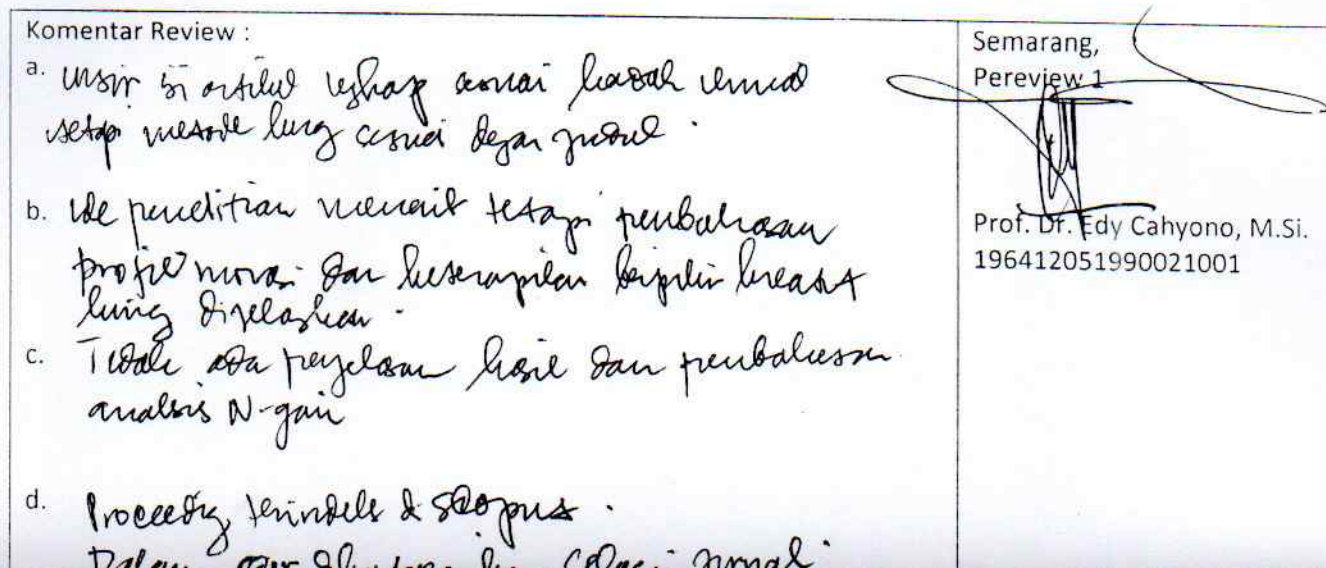 Komentar Review :
a. unsur isi artikel lengkap sesuai kaidah ilmiah
tetapi metode kurang sesuai dengan judul.
b. Ide penelitian menarik tetapi pembahasan
profil inovasi dan keterampilan berpikir kreatif
kurang dijelaskan.
c. Tidak ada penjelasan hasil dan pembahasan
analisis N-gain
d. Proceeding terindeks di scopus.
Dalam
Semarang,
Pereview 1
Prof. Dr. Edy Cahyono, M.Si.
196412051990021001